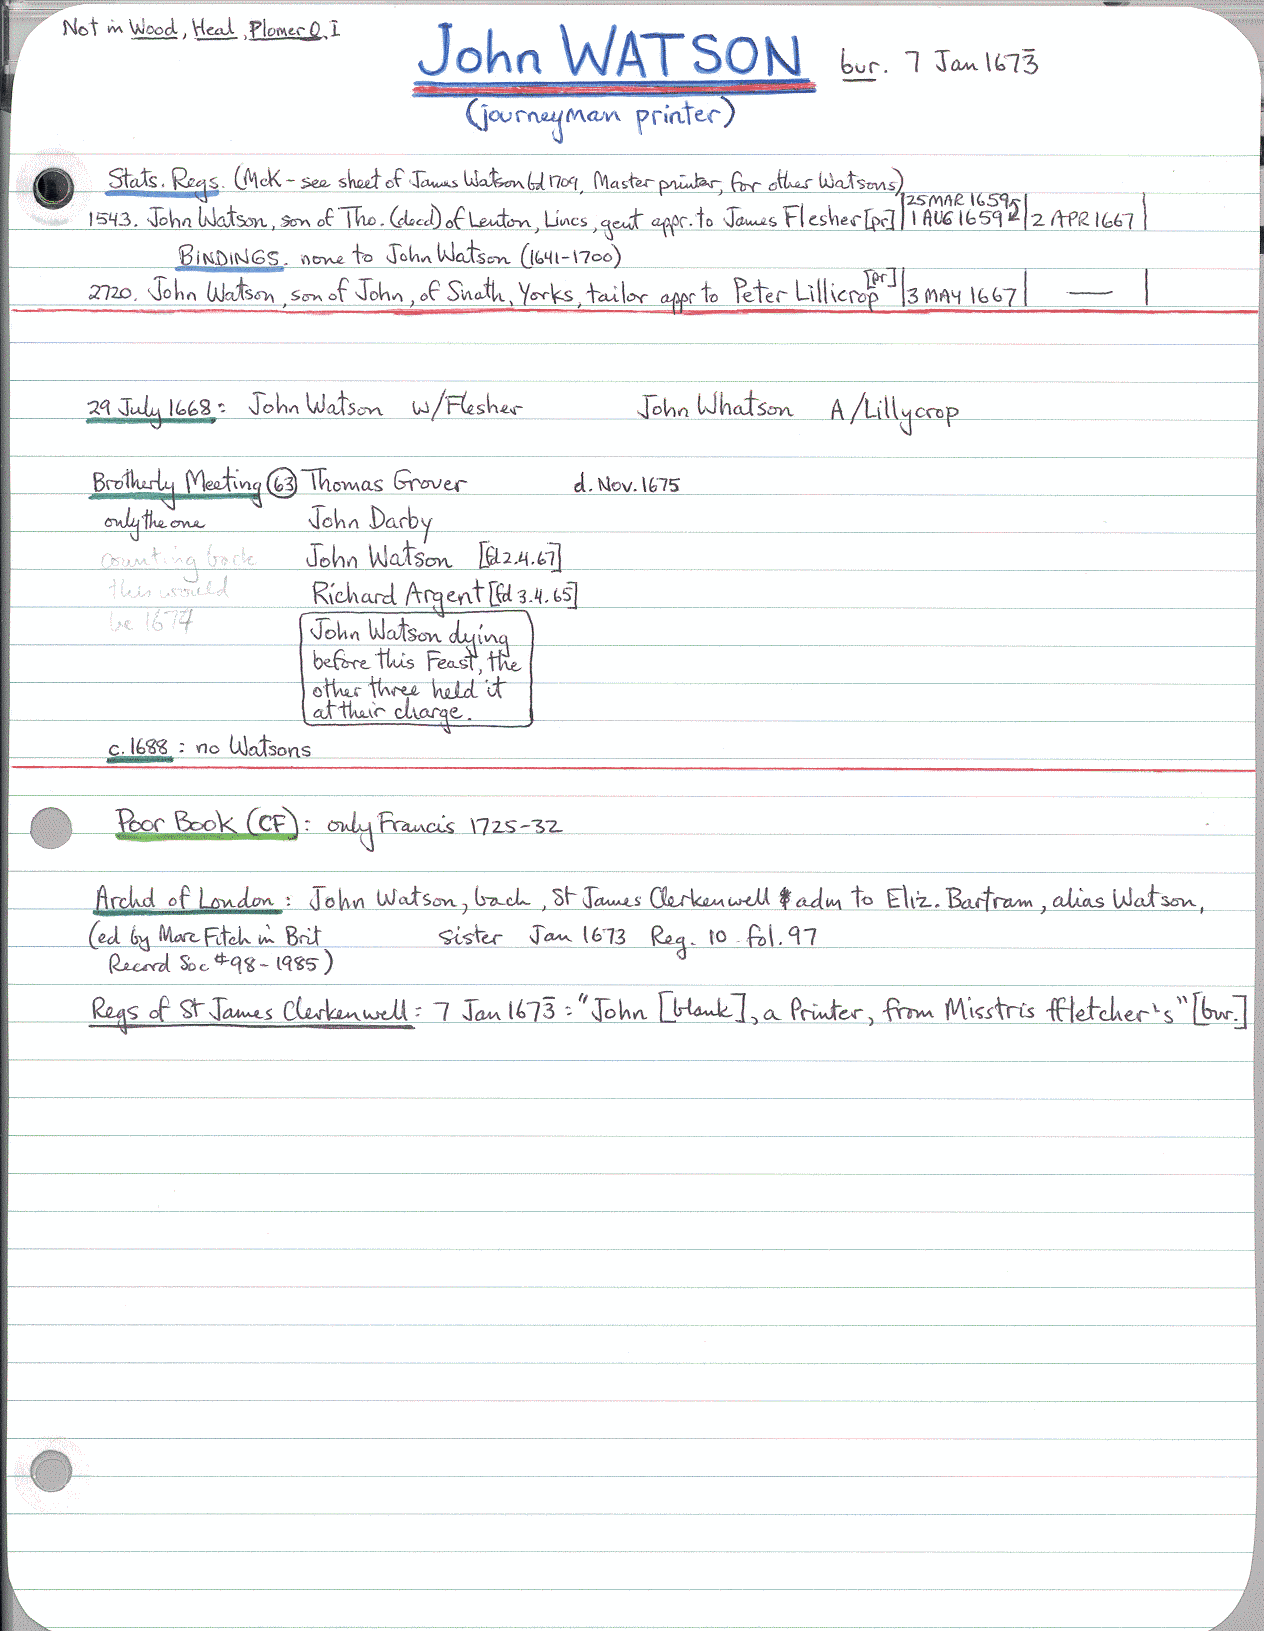 Not in Wood, Heal, Plomer Q, I
John WATSON bur. 7 Jan 1673̄
(journeyman printer)
Stats. Regs. (McK - see sheet of James Watson fd 1709, Master printer, for other Watsons)
25 MAR 1659
1543. John Watson, son of Tho. (decd) of Lenton, Lincs, gent appr. to James Flesher [pr] | 1 AUG 1659 | 2 APR 1667 |
BINDINGS. none to John Watson (1641-1700)
2720. John Watson, son of John, of Snath, Yorks, tailor appr to Peter Lillicrop [pr] | 3 MAY 1667 | — |
29 July 1668: John Watson w/Flesher John Whatson A/Lillycrop
Brotherly Meeting 63 Thomas Grover d. Nov. 1675
only the one John Darby
counting back John Watson [fd 2.4.67]
this would Richard Argent [fd 3.4.65]
be 1674 John Watson dying
before this Feast, the
other three held it
at their charge.
c. 1688: no Watsons
Poor Book (CF): only Francis 1725-32
Archd of London: John Watson, bach, St James Clerkenwell adm to Eliz. Bartram, alias Watson,
(ed by Marc Fitch in Brit sister Jan 1673 Reg. 10 fol. 97
Record Soc #98-1985)
Regs of St James Clerkenwell: 7 Jan 1673̄: "John [blank], a Printer, from Misstris ffletcher's" [bur.]